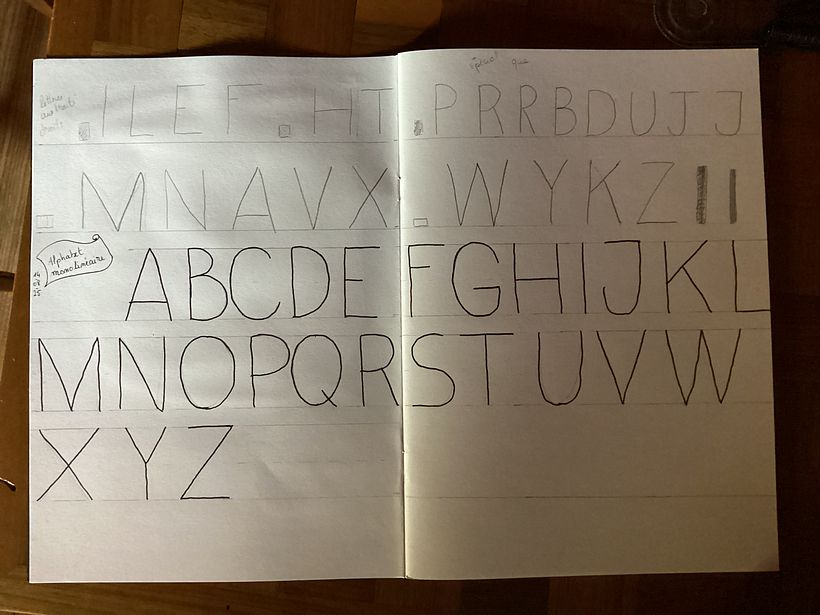 lettres
aux traits
droits
que
I L E F . H T . P R R B D U J J
M N A V X . W Y K Z I I
Alphabet
monolinéaire
14
08
25
A B C D E F G H I J K L
M N O P Q R S T U V W
X Y Z